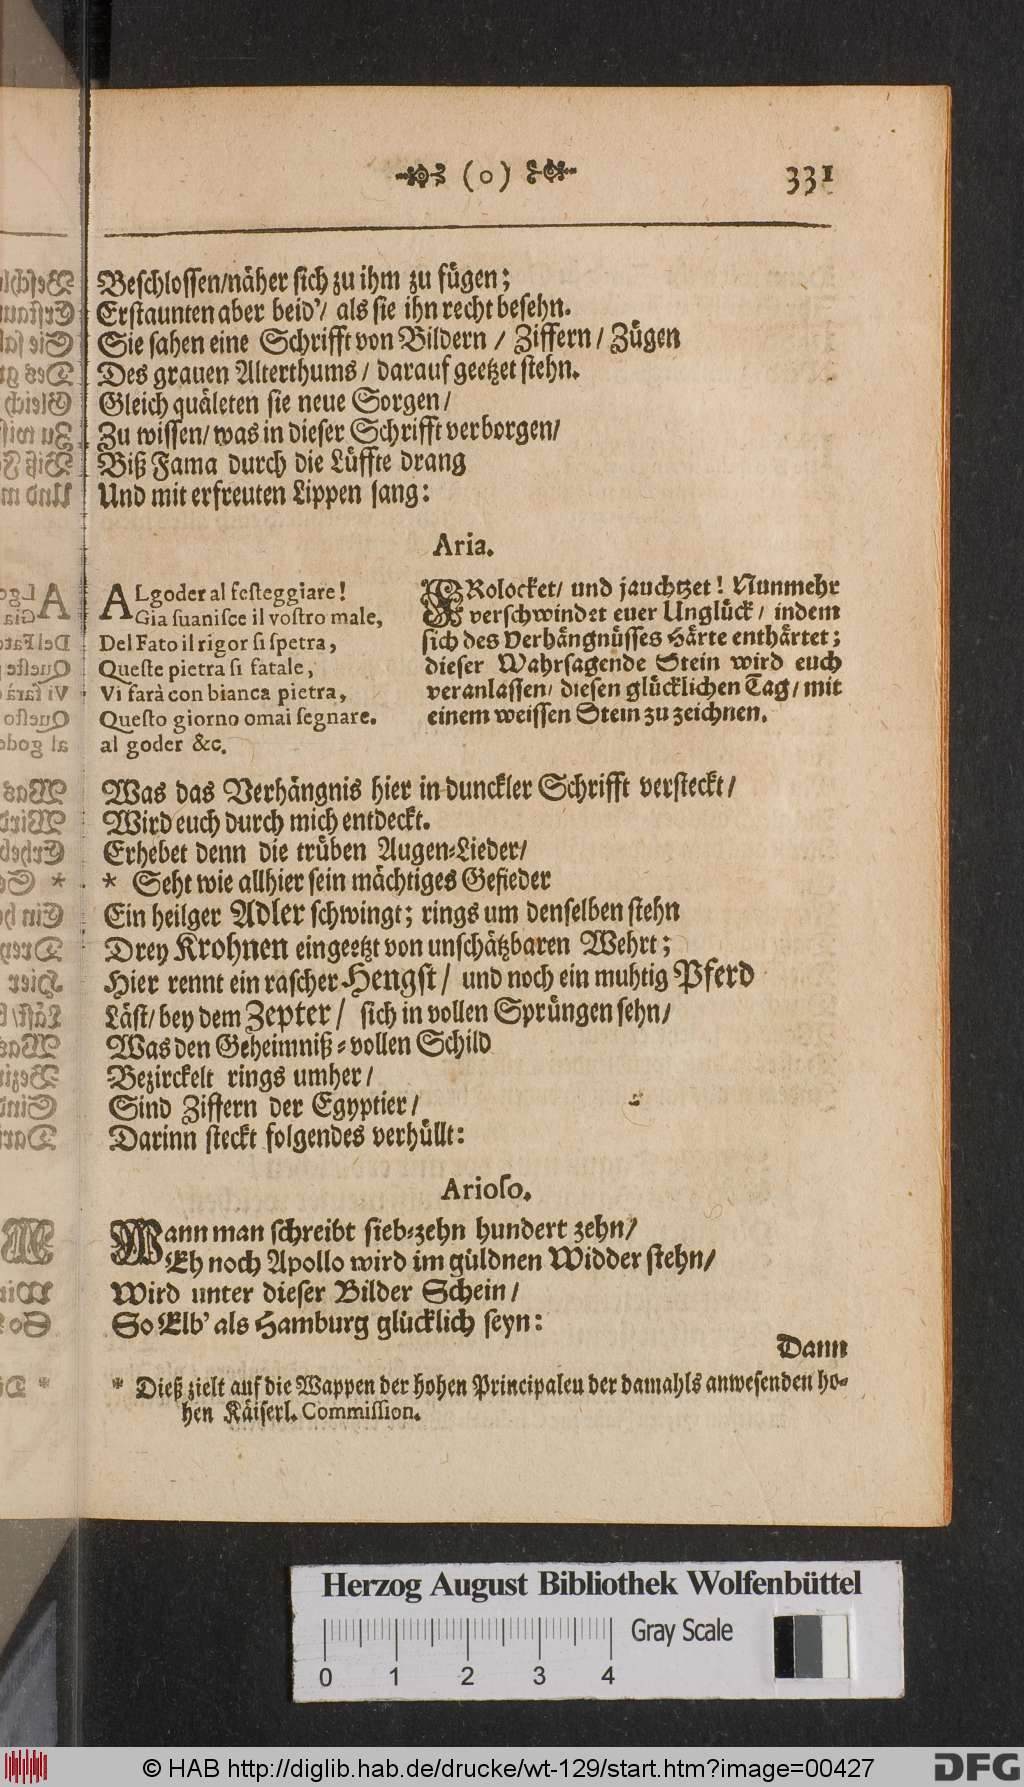 (o) 331
Beschlossen/näher sich zu ihm zu fügen;
Erstaunten aber beid'/ als sie ihn recht besehn.
Sie sahen eine Schrifft von Bildern / Ziffern / Zügen
Des grauen Alterthums / darauf geetzet stehn.
Gleich quäleten sie neue Sorgen /
Zu wissen/ was in dieser Schrifft verborgen/
Biß Fama durch die Lüffte drang
Und mit erfreuten Lippen sang:
Aria.
ALgoder al festeggiare!
Gia suanisce il vostro male,
Del Fato il rigor si spetra,
Queste pietra si fatale,
Vi farà con bianca pietra,
Questo giorno omai segnare.
al goder &c.
FRolocket/ und jauchtzet! Nunmehr
verschwindet euer Unglück / indem
sich des Verhängnüsses Härte enthärtet;
dieser Wahrsagende Stein wird euch
veranlassen/ diesen glücklichen Tag/ mit
einem weissen Stein zu zeichnen.
Was das Verhängnis hier in dunckler Schrifft versteckt /
Wird euch durch mich entdeckt.
Erhebet denn die trüben Augen-Lieder/
* Seht wie allhier sein mächtiges Gefieder
Ein heilger Adler schwingt; rings um denselben stehn
Drey Krohnen eingeetzt von unschätzbaren Wehrt;
Hier rennt ein rascher Hengst / und noch ein muhtig Pferd
Läst/ bey dem Zepter / sich in vollen Sprüngen sehn/
Was den Geheimniß-vollen Schild
Bezirckelt rings umher /
Sind Ziffern der Egyptier /
Darinn steckt folgendes verhüllt:
Arioso.
Wann man schreibt sieb-zehn hundert zehn/
Eh noch Apollo wird im güldnen Widder stehn/
Wird unter dieser Bilder Schein /
So Elb' als Hamburg glücklich seyn:
Dann
* Dieß zielt auf die Wappen der hohen Principalen der damahls anwesenden ho-
hen Käiserl. Commission.
Herzog August Bibliothek Wolfenbüttel
Gray Scale
0 1 2 3 4
© HAB http://diglib.hab.de/drucke/wt-129/start.htm?image=00427
DFG